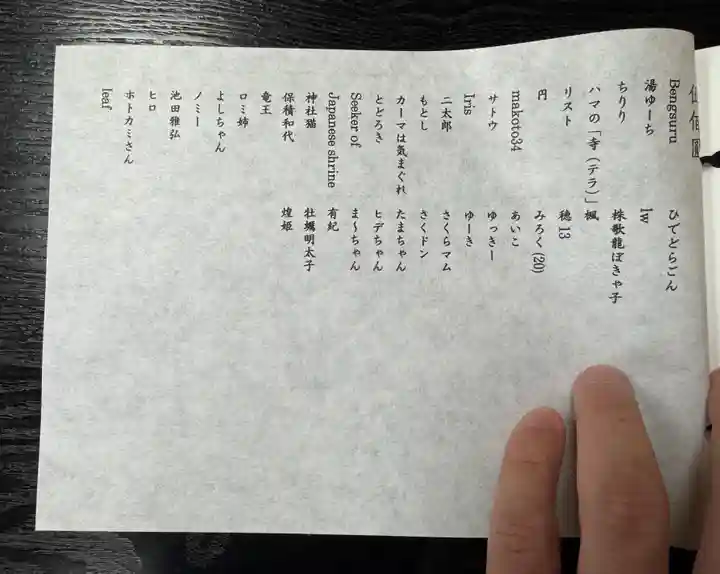 Bengsuru
湯ゆーち
ちりり
ハマの「寺(テラ)」
リスト
円
makoto34
サトウ
Iris
二太郎
もとし
カーマは気まぐれ
ととろき
Seeker of
Japanese shrine
神社猫
保積和代
竜王
ロミ姉
よしちゃん
ノミー
池田雅弘
ヒロ
ホトカミさん
leaf
ひでとらごん
lw
株歌龍ぽきゃ子
楓
穂13
みろく(20)
あいこ
ゆっきー
ゆーき
さくらマム
さくドン
たまちゃん
ヒデちゃん
ま〜ちゃん
有紀
牡蠣明太子
煌姫